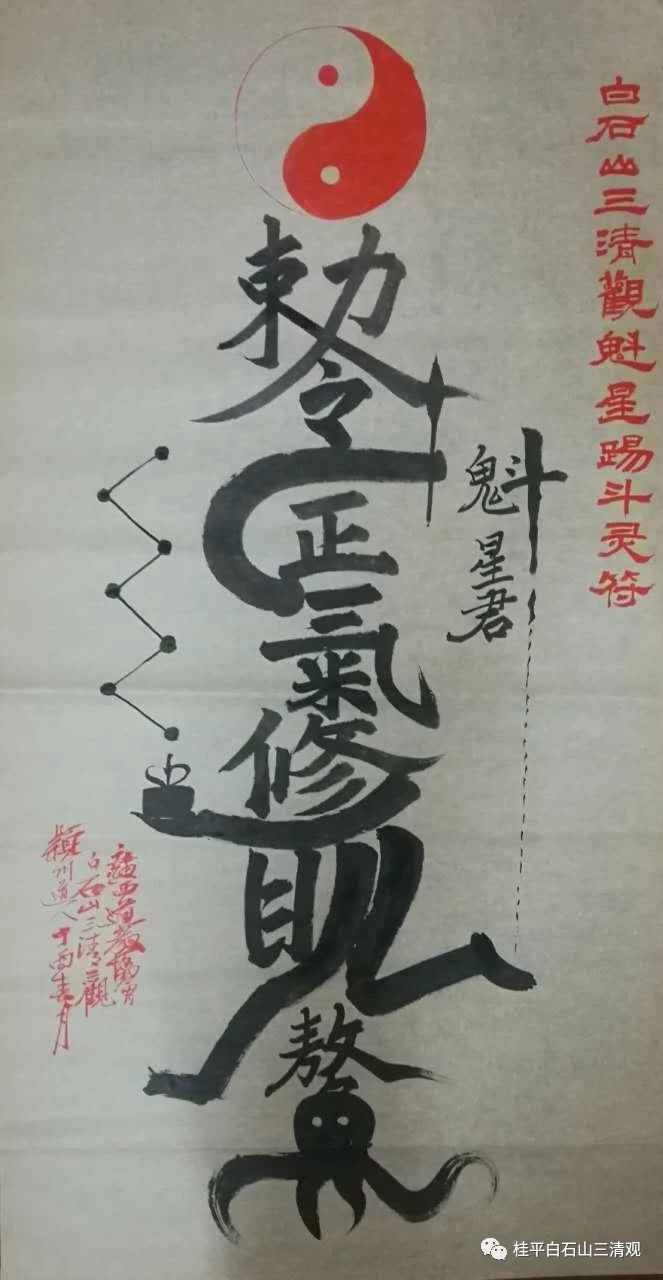 白石山三清觀魁星踢斗灵符
魁星君
勅令
正氣修明
鰲
廣西道教協會
白石山三清觀
穎川道人丁酉春月
桂平白石山三清观